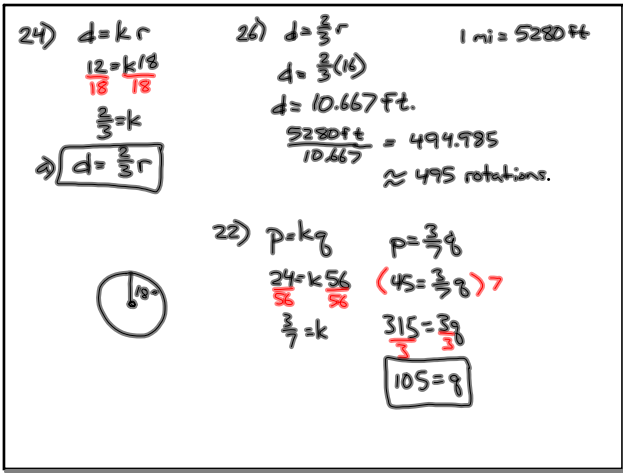 24) d = k r
12 = k18
18 18
2/3 = k
a) d = 2/3 r
26) d = 2/3 r
d = 2/3 (16)
d = 10.667 Ft.
5280 ft / 10.667 = 494.985
≈ 495 rotations.
1 mi = 5280 ft
18
22) p = kq
24 = k 56
56 56
3/7 = k
p = 3/7 q
(45 = 3/7 q) 7
315 = 3q
3 3
105 = q